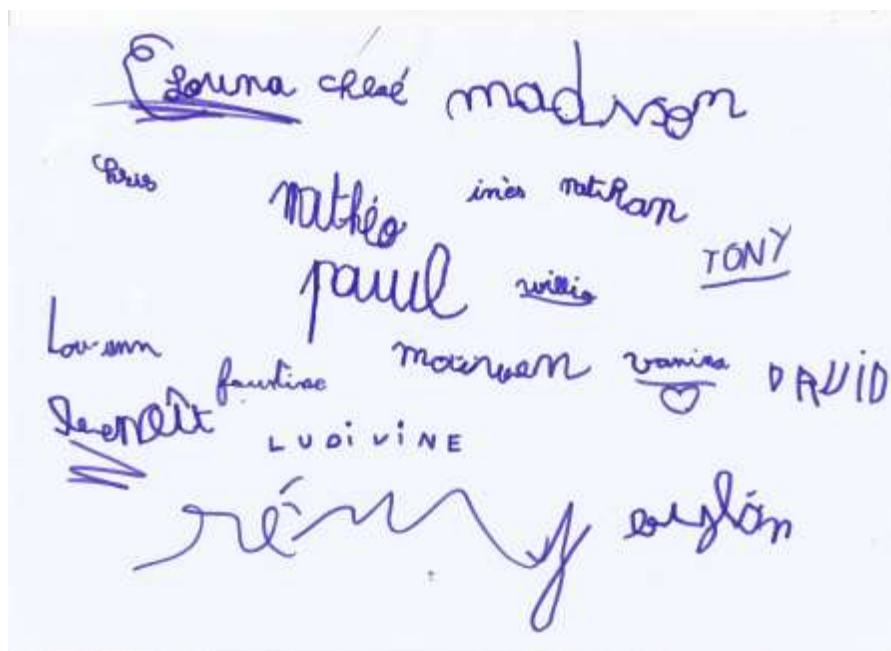 Louna chloé madison
Chris mathéo inès nathan
paul willis TONY
Lou-ann faustine maëwen vanina DAVID
Benoît LUDIVINE
rémy